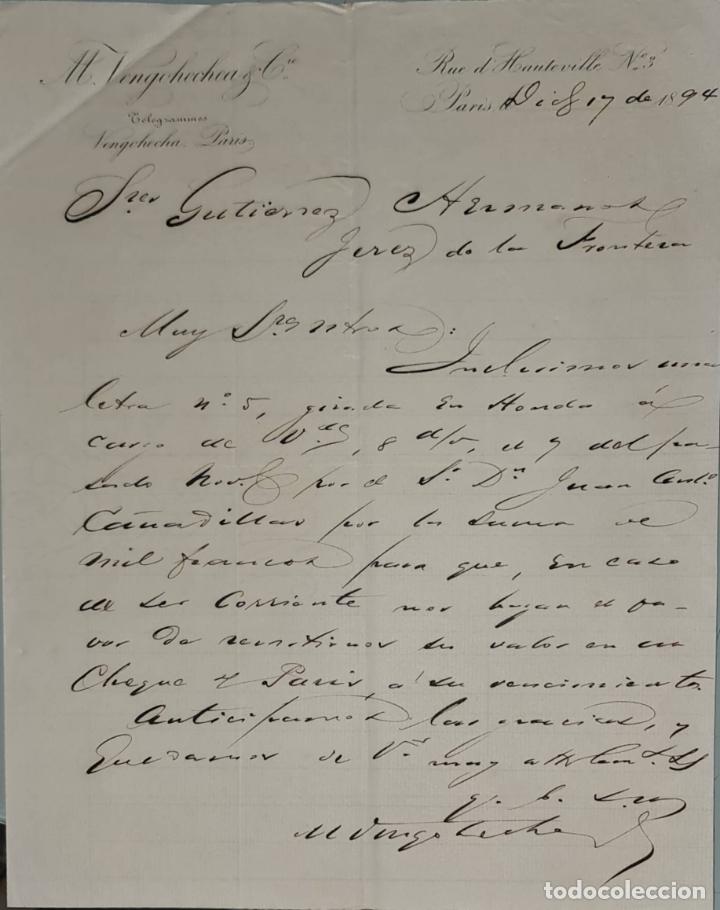 M. Vengohechea & Cie
Rue d'Hauteville No. 3
Telegrammes
Vengohecha. Paris
Paris, Dic 17 de 1894
Sres Gutierrez Hermanos
Jerez de la Frontera
Muy Sres ntros:
Inclusimos una
letra no. 5, girada en Honda á
cargo de Vdes, 8 d/v, el 7 del pa-
sado Nov. por el Sr. Dn Juan Anto.
Cañadillas por la suma de
mil francos para que, en caso
de ser corriente nos hagan el fa-
vor de remitirnos su valor en un
Cheque s/ Paris, á su vencimiento.
Anticipamos las gracias, y
quedamos de Vs. muy attos. SS
q. b. s. m.
M Vengohechea
todocoleccion
todocoleccion.net